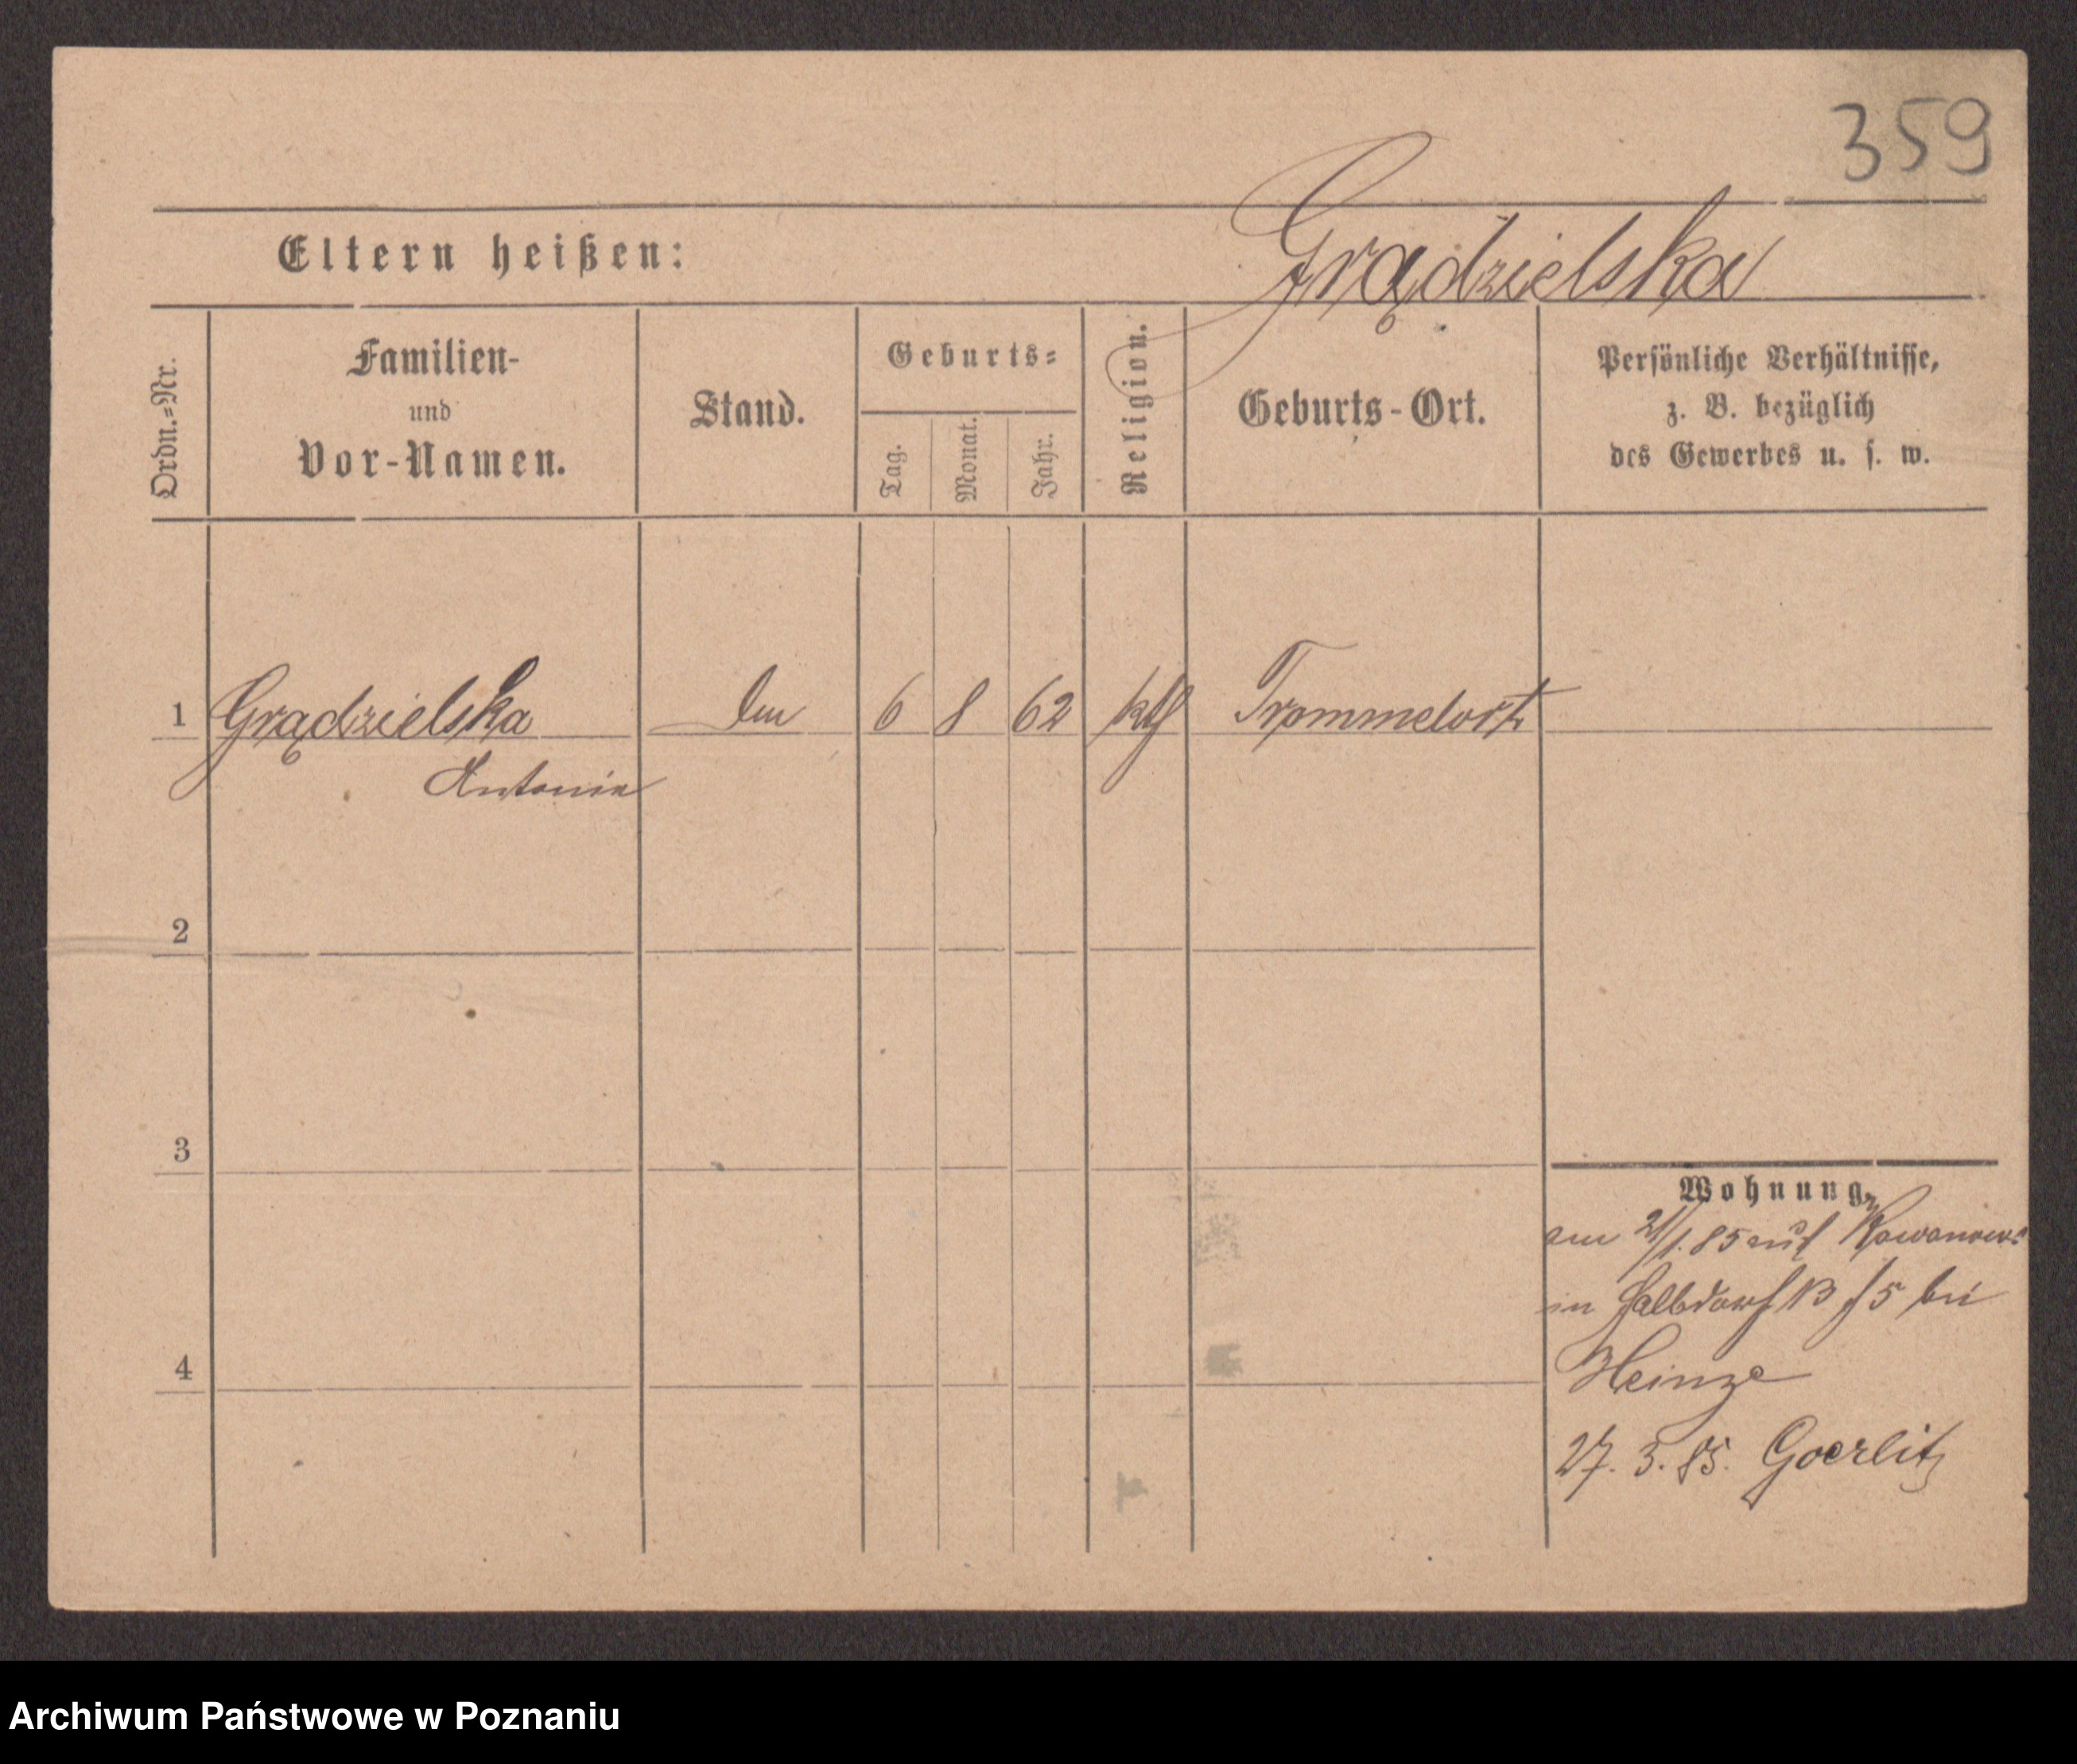 359
Eltern heißen: Grądzielska
Ordn.=Nr.
Familien-
und
Vor-Namen.
Stand.
Geburts=
Tag.
Monat.
Jahr.
Religion.
Geburts-Ort.
Persönliche Verhältnisse,
z. B. bezüglich
des Gewerbes u. s. w.
1 Grądzielska 6 8 62 kth Trommelort
Antonie
2
3
4
Wohnung.
am 21/1. 85 auf
in Halbdorf 13 bei
Heinze
27. 3. 85. Goerlitz
Archiwum Państwowe w Poznaniu